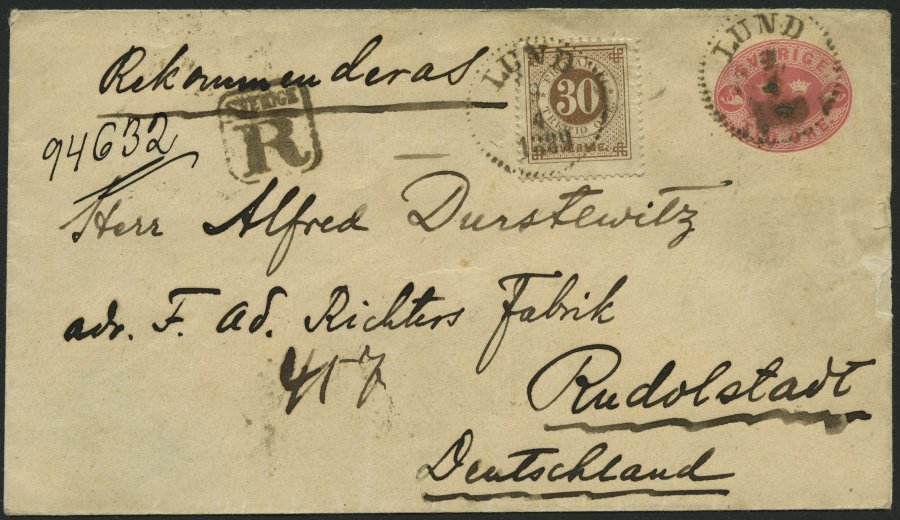 Rekommenderas
LUND
4
1889
30
SVERIGE.
LUND
SVERIGE
94632
SVERIGE
R
Herr Alfred Durstewitz
adr. F. Ad. Richters Fabrik
417
Rudolstadt
Deutschland